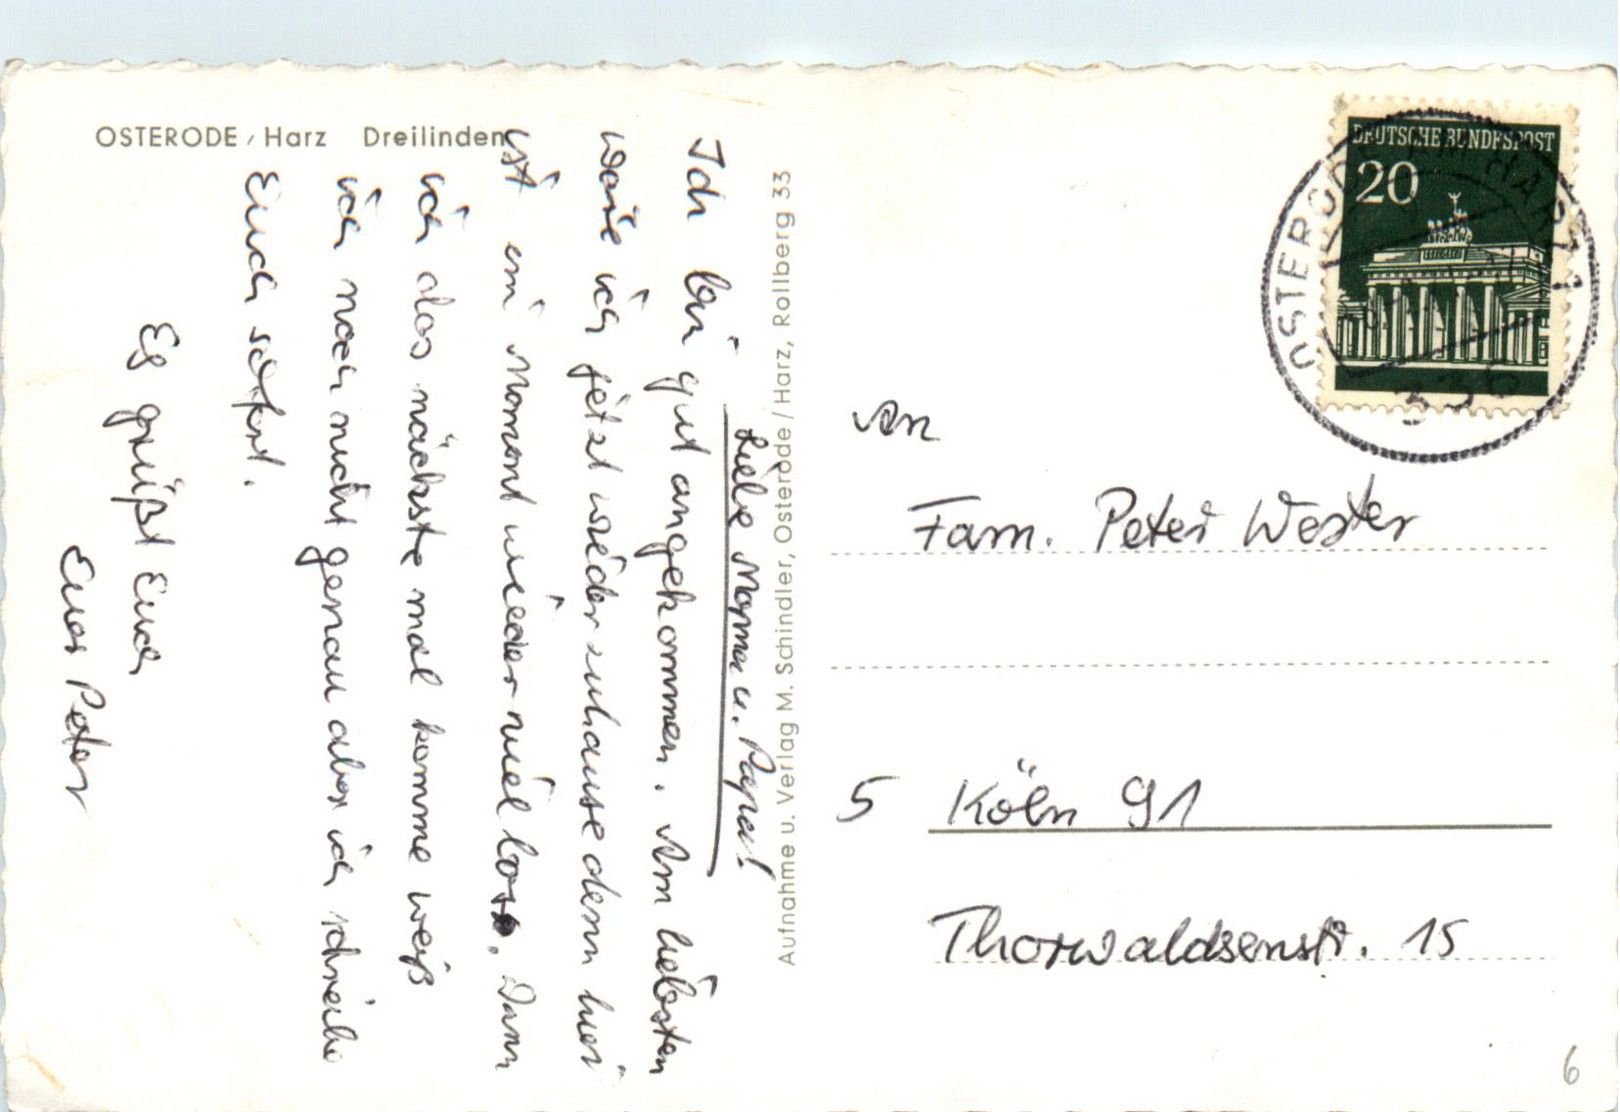 OSTERODE / Harz Dreilinden
Liebe Mama u. Papa!
Ich bin gut angekommen. Am liebsten
wäre ich jetzt wieder zuhause denn hier
ist im Moment wieder viel los. Wann
ich das nächste mal komme weiß
ich noch nicht genau aber ich schreibe
Euch sofort.
Es grüßt Euch
Euer Peter
Aufnahme u. Verlag M. Schindler, Osterode/Harz, Rollberg 33
DEUTSCHE BUNDESPOST
20
OSTERODE AM HARZ 1
An
Fam. Peter Wester
5 Köln 91
Thorwaldsenstr. 15
6